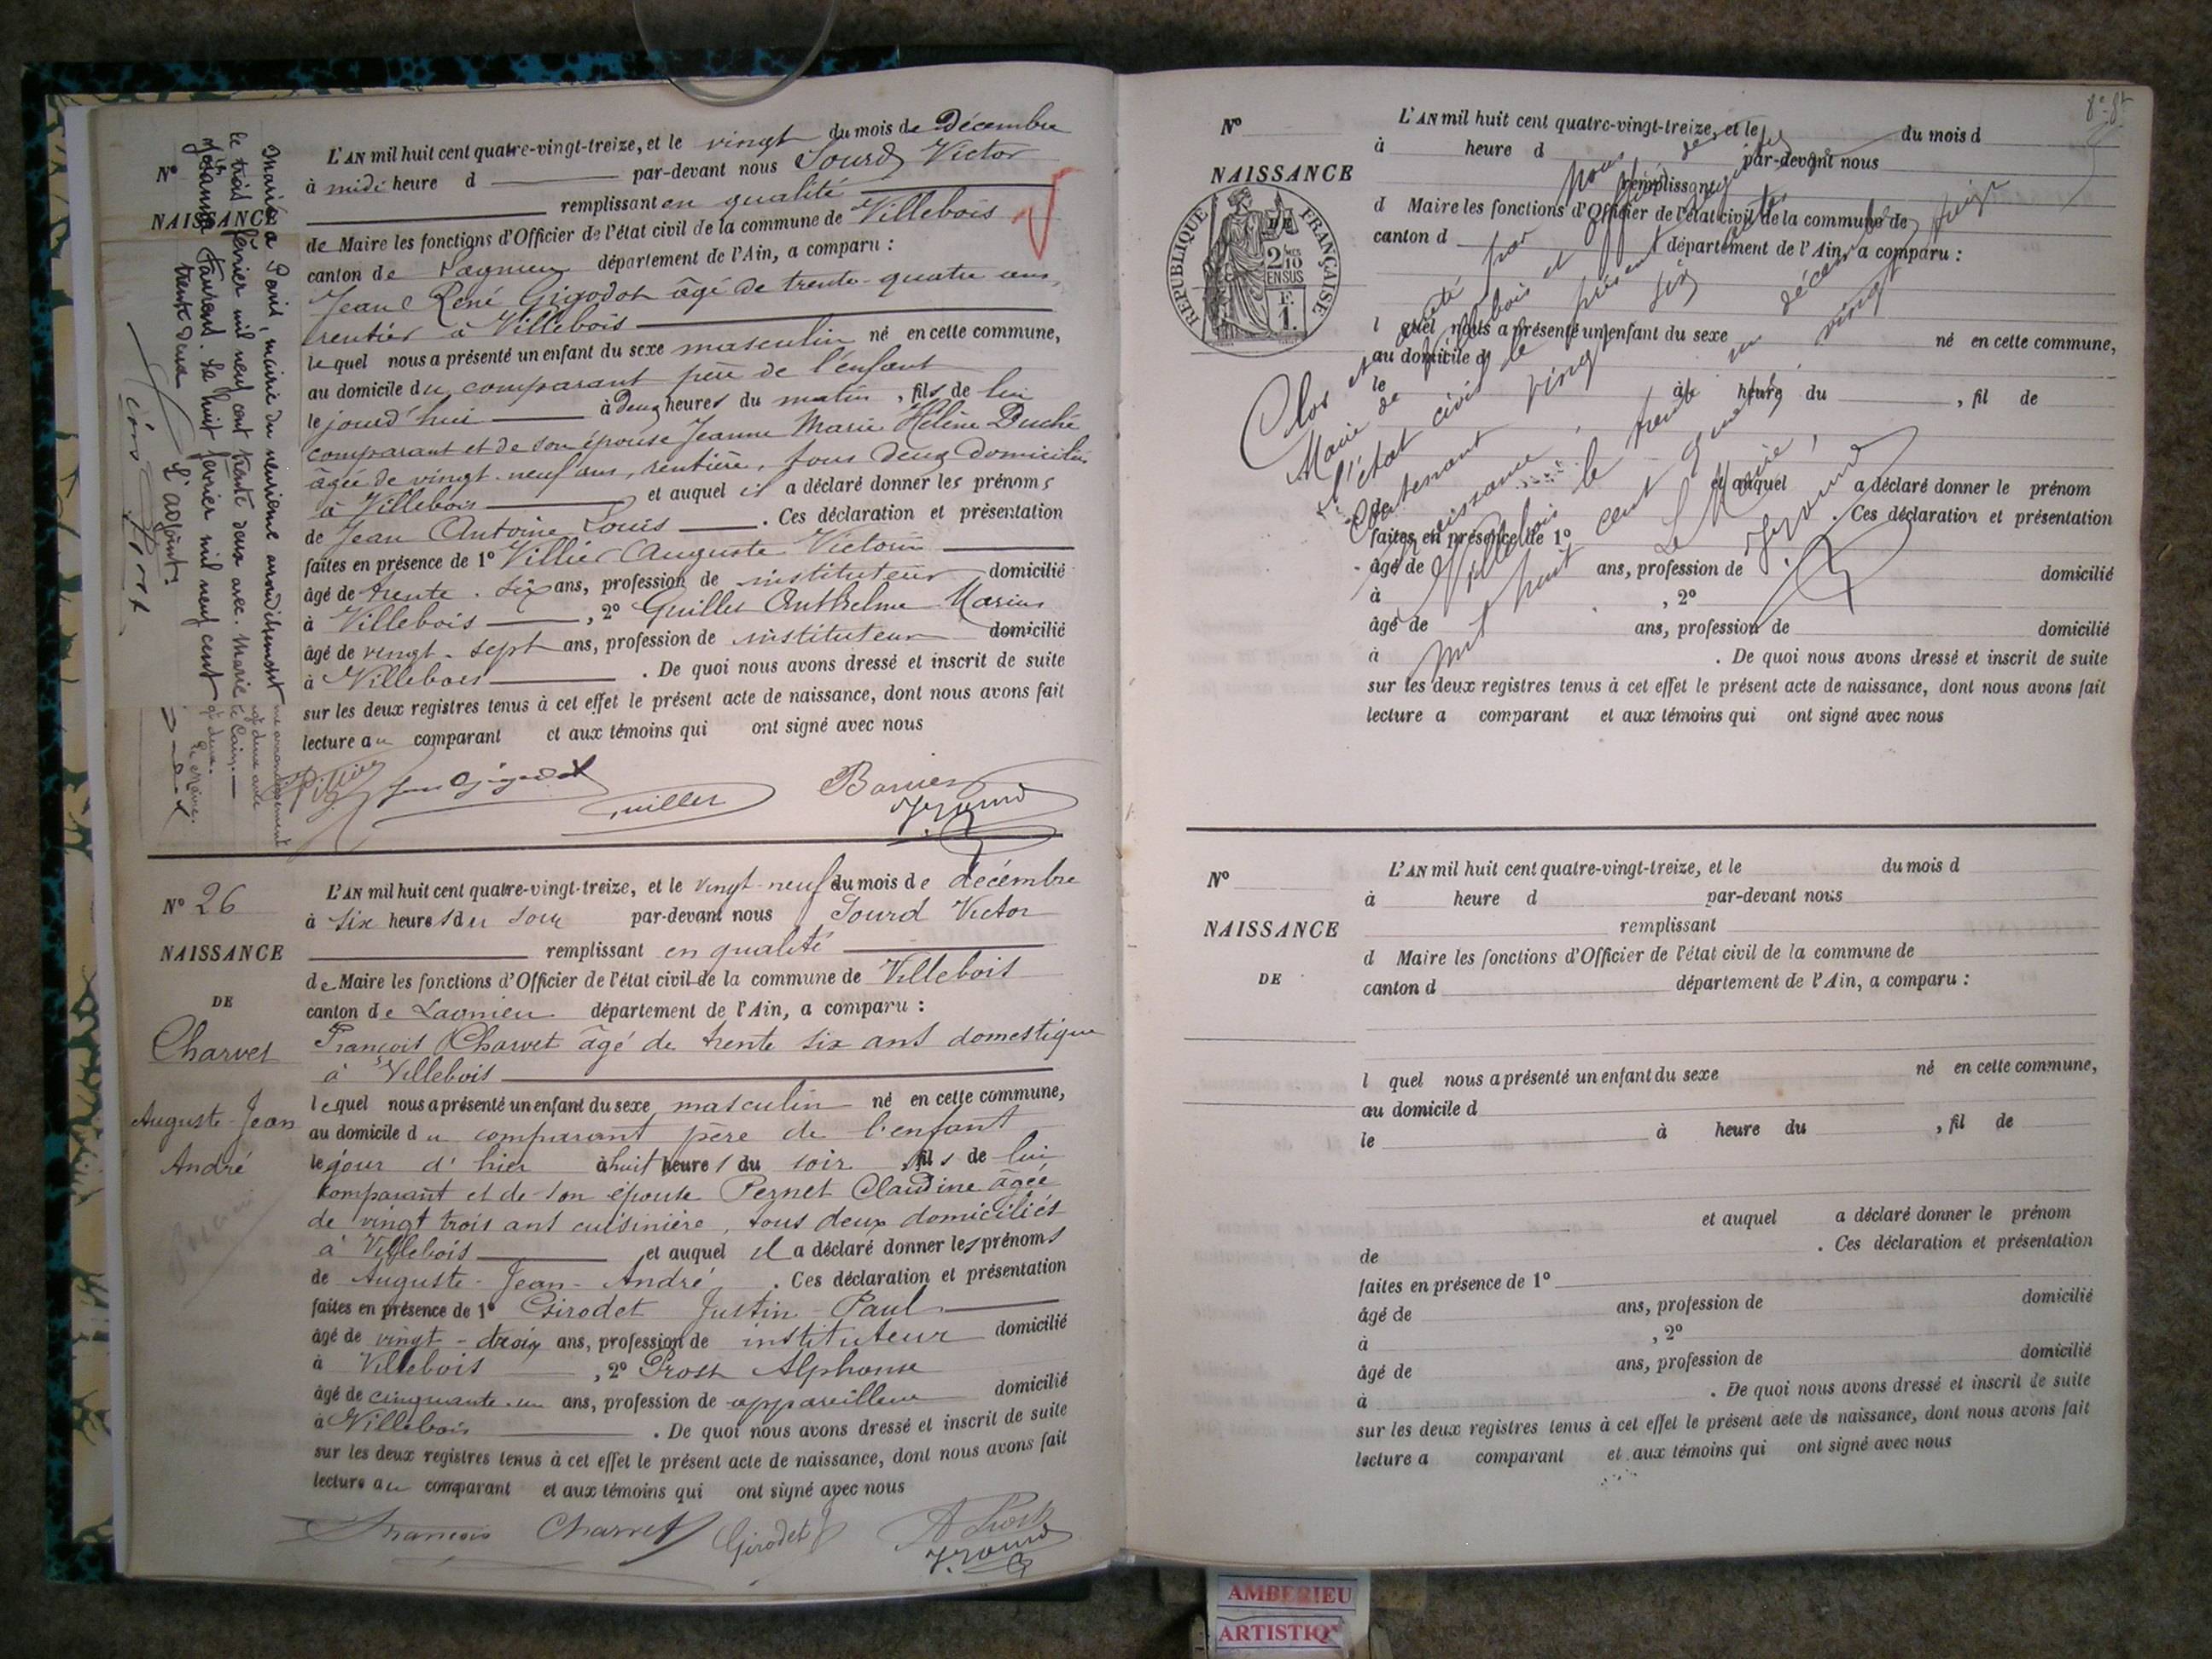 L'AN mil huit cent quatre-vingt-treize, et le vingt du mois de Décembre
à midi heure d par-devant nous Sourd Victor
remplissant en qualité
de Maire les fonctions d'Officier de l'état civil de la commune de Villebois
canton de Lagnieu département de l'Ain, a comparu :
Jean René Gigodot âgé de trente-quatre ans,
rentier à Villebois
le quel nous a présenté un enfant du sexe masculin né en cette commune,
au domicile du comparant père de l'enfant
le jourd'hui à Deux heures du matin, fils de lui
comparant et de son épouse Jeanne Marie Hélène Duché
âgée de vingt-neuf ans, rentière, tous deux domiciliés
à Villebois et auquel il a déclaré donner les prénoms
de Jean Antoine Louis . Ces déclaration et présentation
faites en présence de 1° Villier Auguste Victorin
âgé de trente-six ans, profession de instituteur domicilié
à Villebois , 2° Guillet Anthelme Marius
âgé de vingt-sept ans, profession de instituteur domicilié
à Villebois . De quoi nous avons dressé et inscrit de suite
sur les deux registres tenus à cet effet le présent acte de naissance, dont nous avons fait
lecture au comparant et aux témoins qui ont signé avec nous
N°
NAISSANCE
Marié à Paris, mairie du neuvième arrondissement
le trois février mil neuf cent trente deux avec Marie
Johanna Laurent. Le huit février mil neuf cent
trente deux
L'adjoint:
Le Maire.
Villier Guillet
N° 26
NAISSANCE
DE
Charvet
Auguste-Jean
André
L'AN mil huit cent quatre-vingt-treize, et le vingt-neuf du mois de décembre
à six heures du soir par-devant nous Sourd Victor
remplissant en qualité
de Maire les fonctions d'Officier de l'état civil de la commune de Villebois
canton de Lagnieu département de l'Ain, a comparu :
François Charvet âgé de trente six ans domestique
à Villebois
lequel nous a présenté un enfant du sexe masculin né en cette commune,
au domicile du comparant père de l'enfant
le jour d'hier à huit heures du soir, fils de lui
comparant et de son épouse Pernet Claudine âgée
de vingt trois ans cuisinière, tous deux domiciliés
à Villebois et auquel il a déclaré donner les prénoms
de Auguste-Jean-André . Ces déclaration et présentation
faites en présence de 1° Girodet Justin Paul
âgé de vingt-trois ans, profession de instituteur domicilié
à Villebois , 2° Prost Alphonse
âgé de cinquante-un ans, profession de appareilleur domicilié
à Villebois . De quoi nous avons dressé et inscrit de suite
sur les deux registres tenus à cet effet le présent acte de naissance, dont nous avons fait
lecture au comparant et aux témoins qui ont signé avec nous
François Charvet Girodet A Prost
N°
NAISSANCE
RÉPUBLIQUE FRANÇAISE
2 10MES
EN SUS
F.
1.
L'AN mil huit cent quatre-vingt-treize, et le du mois d
à heure d par-devant nous
remplissant
d Maire les fonctions d'Officier de l'état civil de la commune de
canton d département de l'Ain, a comparu :
l quel nous a présenté un enfant du sexe né en cette commune,
au domicile d
le à heure du , fil de
et auquel a déclaré donner le prénom
de . Ces déclaration et présentation
faites en présence de 1°
âgé de ans, profession de domicilié
à , 2°
âgé de ans, profession de domicilié
à . De quoi nous avons dressé et inscrit de suite
sur les deux registres tenus à cet effet le présent acte de naissance, dont nous avons fait
lecture a comparant et aux témoins qui ont signé avec nous
Clos et arrêté par nous
Maire de Villebois et des
l'état civil le présent registre
Contenant vingt six actes de
naissance,
Villebois le trente un décembre
mil huit cent quatre vingt treize
Le Maire,
N°
NAISSANCE
DE
L'AN mil huit cent quatre-vingt-treize, et le du mois d
à heure d par-devant nous
remplissant
d Maire les fonctions d'Officier de l'état civil de la commune de
canton d département de l'Ain, a comparu :
l quel nous a présenté un enfant du sexe né en cette commune,
au domicile d
le à heure du , fil de
et auquel a déclaré donner le prénom
de . Ces déclaration et présentation
faites en présence de 1°
âgé de ans, profession de domicilié
à , 2°
âgé de ans, profession de domicilié
à . De quoi nous avons dressé et inscrit de suite
sur les deux registres tenus à cet effet le présent acte de naissance, dont nous avons fait
lecture a comparant et aux témoins qui ont signé avec nous
AMBERIEU
ARTISTIQ